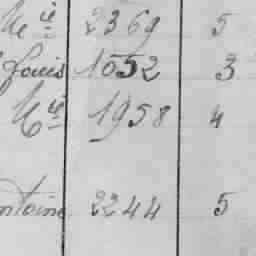 Mie 2369 5
Louis 1052 3
Mie 1958 4
ntoine 2244 5